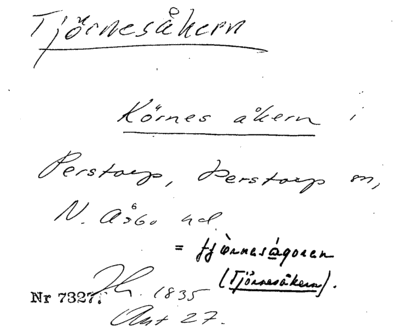 Tjörnesåkern
Körnes åkern i
Perstorp, Perstorp sn,
N. Åsbo hd.
= fjörnesågoren
(Tjörnesåkern).
Nr 7327. Jh. 1835
Akt 27.